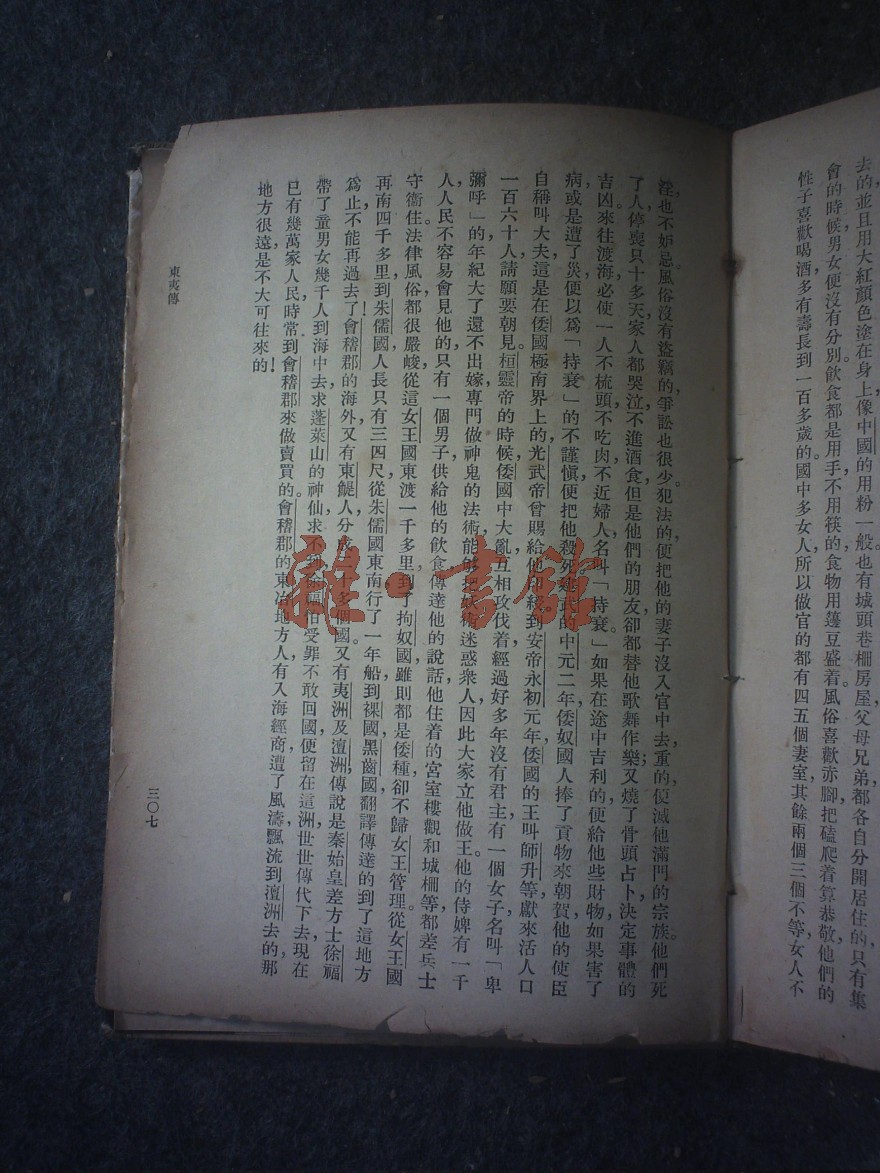 去的，並且用大紅顏色塗在身上，像中國的用粉一般。也有城頭巷柵房屋。父母兄弟都各自分開居住的，只有集
會的時候，男女便沒有分別。飲食都是用手，不用筷的。食物用籩豆盛着。風俗喜歡赤腳。把磕爬着算恭敬。他們的
性子喜歡喝酒。多有壽長到一百多歲的。國中多女人，所以做官的都有四五個妻室，其餘兩個三個不等。女人不
淫，也不妒忌。風俗沒有盜竊的，爭訟也很少。犯法的，便把他的妻子沒入官中去，重的便滅他滿門的宗族。他們死
了人，停喪只十多天，家人都哭泣，不進酒食，但是他們的朋友，卻都替他歌舞作樂；又燒了骨頭占卜，決定事體的
吉凶。來往渡海，必使一人不梳頭，不吃肉，不近婦人，名叫「持衰。」如果在途中吉利的，便給他些財物；如果害了
病，或是遭了災，便以爲「持衰」的不謹愼，便把他殺死。建武的中元二年，倭奴國人捧了貢物來朝賀，他的使臣
自稱叫大夫，這是在倭國極南界上的，光武帝曾賜給他印綬。到安帝永初元年，倭國的王叫師升等獻來活人口
一百六十人，請願要朝見。桓靈帝的時候，倭國中大亂，互相攻伐着，經過好多年沒有君主，有一個女子名叫「卑
彌呼」的，年紀大了還不出嫁，專門做神鬼的法術，能够把妖術迷惑衆人，因此大家立他做王。他的侍婢有一千
人，人民不容易會見他的，只有一個男子，供給他的飲食，傳達他的說話。他住着的宮室樓觀和城柵等，都差兵士
守衞住，法律風俗都很嚴峻。從這女王國東渡一千多里，到了拘奴國，雖則都是倭種，卻不歸女王管理。從女王國
再南四千多里，到朱儒國，人長只有三四尺。從朱儒國東南行了一年船，到裸國黑齒國，翻譯傳達的，到了這地方
爲止，不能再過去了！會稽郡的海外，又有東鯷人，分成二十多個國。又有夷洲及澶洲，傳說是秦始皇差方士徐福
帶了童男女幾千人，到海中去求蓬萊山的神仙，求不到，徐福怕受罪不敢回國，便留在這洲，世世傳代下去，現在
已有幾萬家人民，時常到會稽郡來做賣買的。會稽郡的東冶地方，人有入海經商，遭了風濤，飄流到澶洲去的，那
地方很遠，是不大可往來的！
東夷傳
三〇七
雜·書館